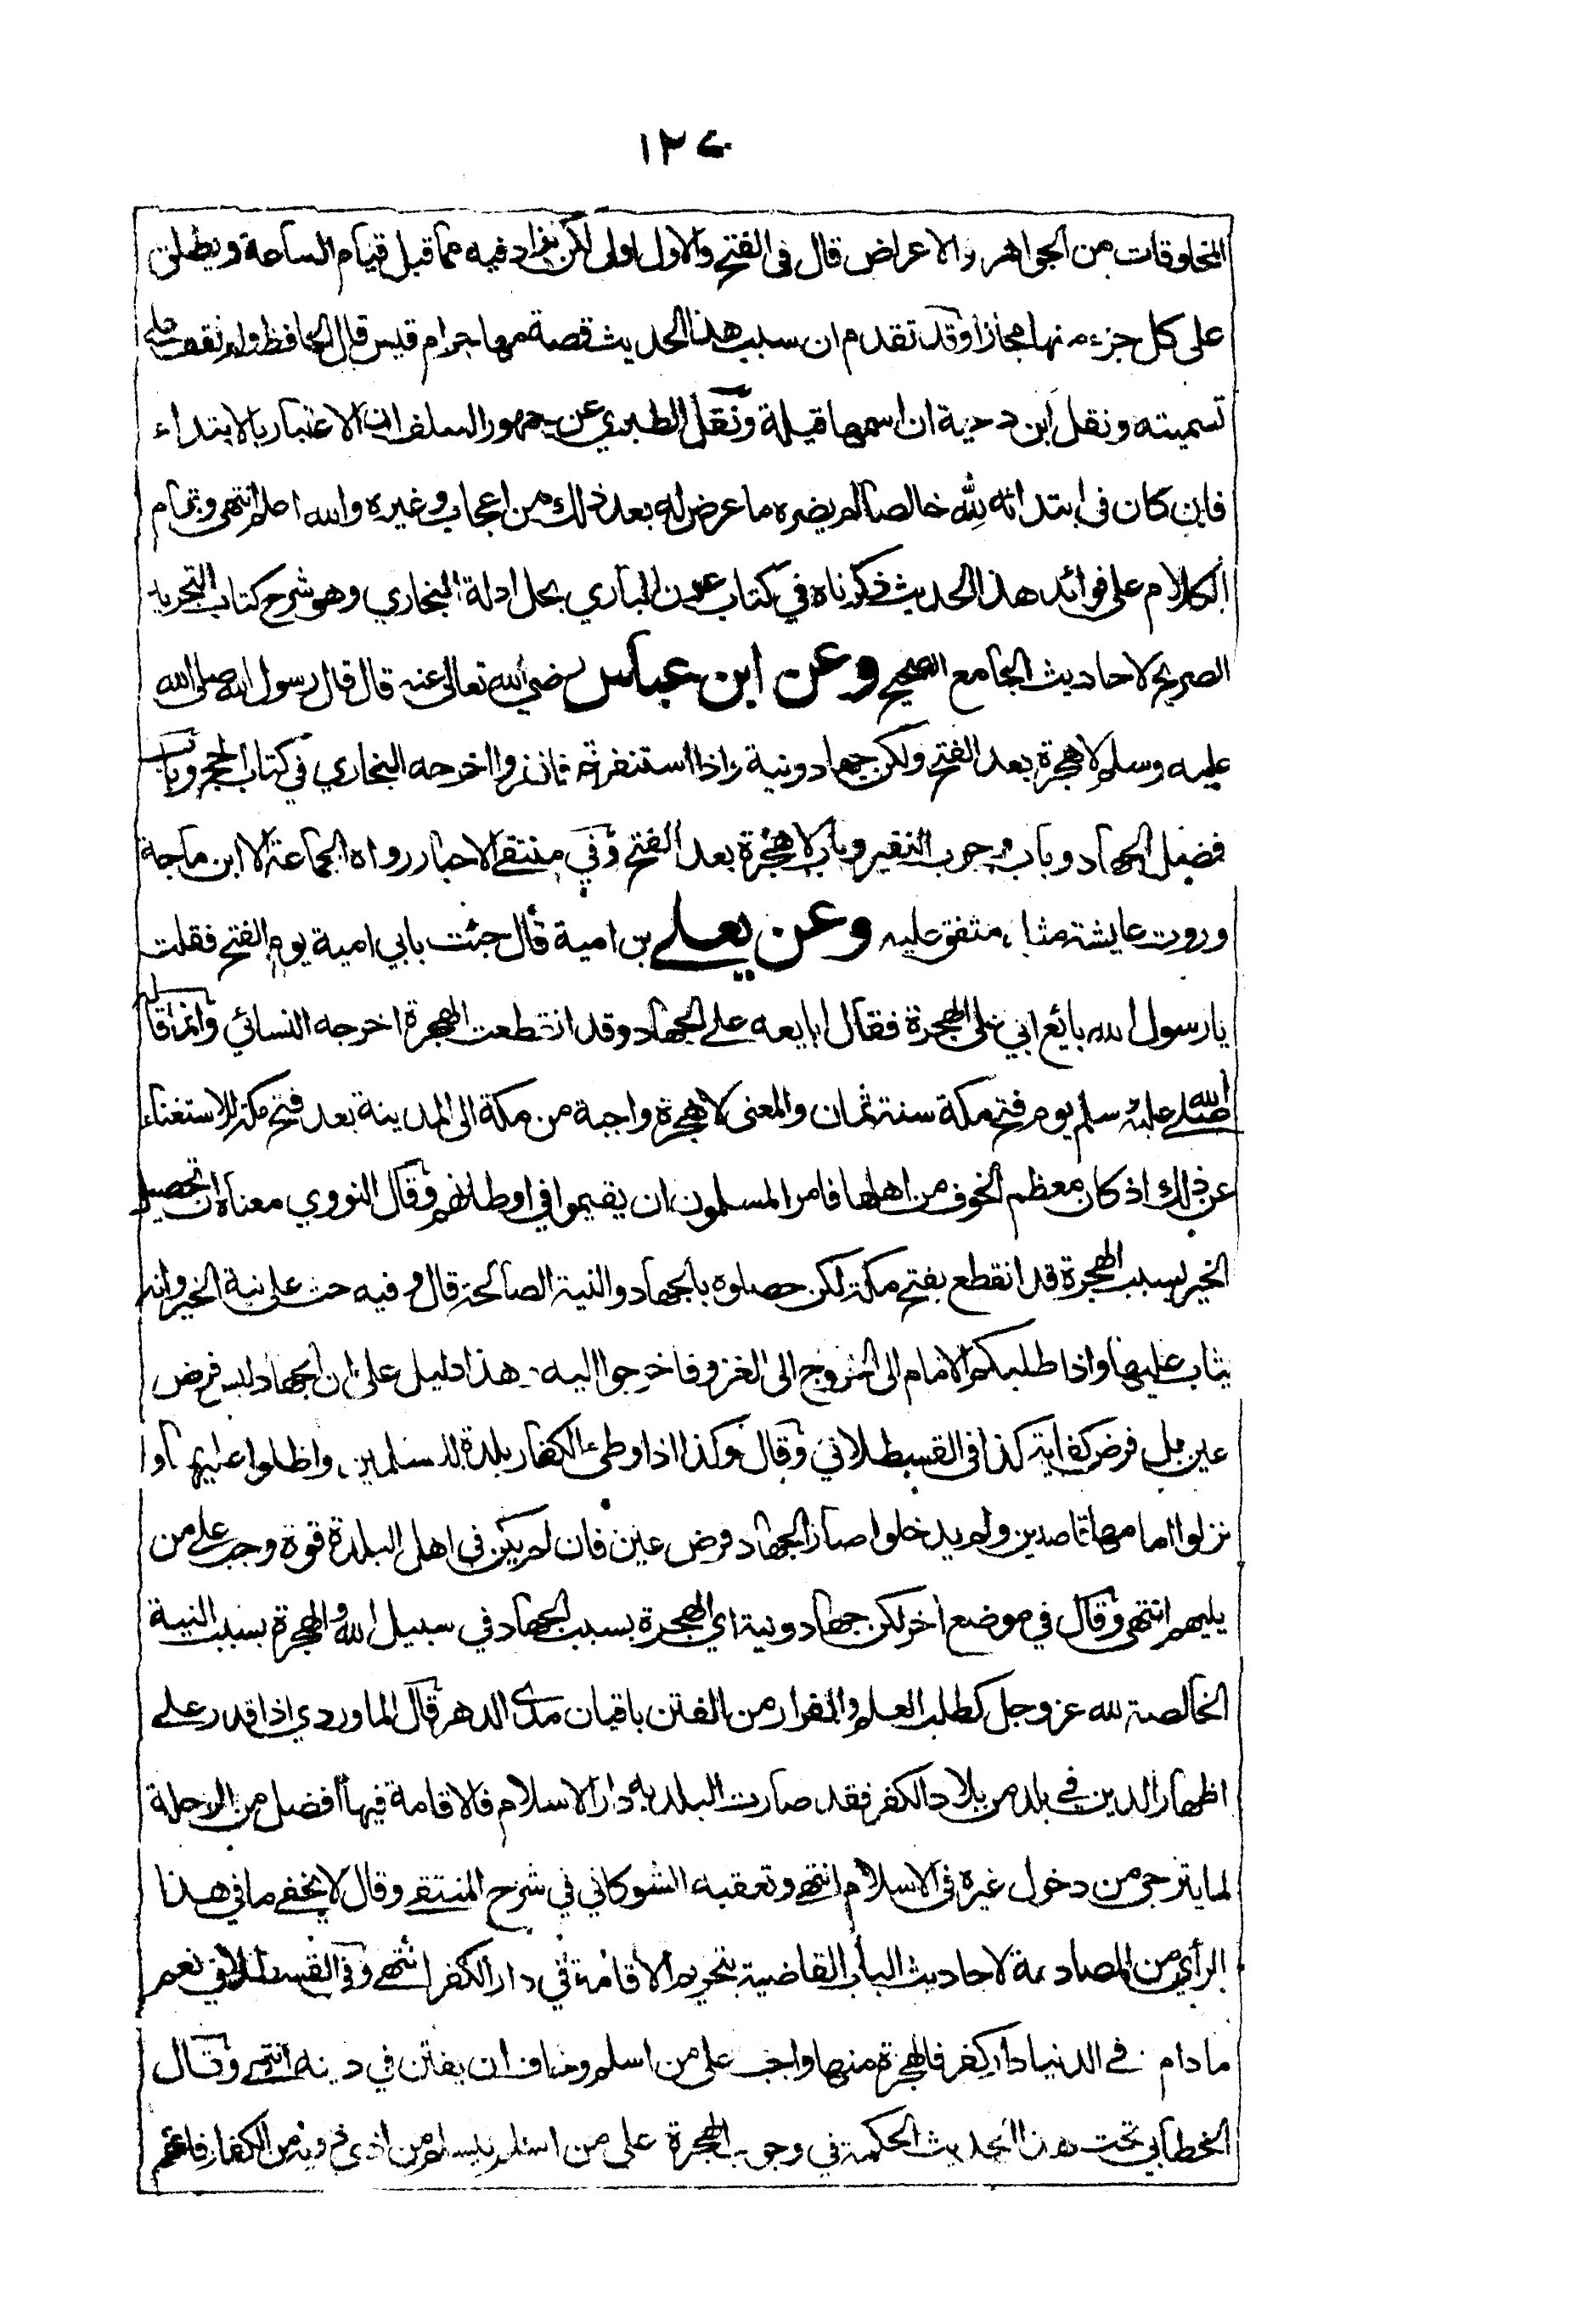 ١٣٤
المخلوقات من الجواهر والاعراض قال في الفتح والاول اولى لكن يزاد فيه مما قبل قيام الساعة ويطلق
على كل جزء منها مجازا وقد تقدم ان سبب هذا الحديث قصة مهاجر ام قيس قال الحافظ ولم نقف على
تسميته ونقل ابن دحية ان اسمها قيلة ونقل الطبري عن جمهور السلف ان الاعتبار بالابتداء
فان كان في ابتدائه لله خالصا لم يضره ما عرض له بعد ذلك من اعجاب وغيره والله اعلم انتهى وتمام
الكلام على فوائد هذا الحديث ذكرناه في كتاب عون الباري بحل ادلة البخاري وهو شرح كتاب التجريد
الصريح لاحاديث الجامع الصحيح وعن ابن عباس رضي الله تعالى عنه قال قال رسول الله صلى الله
عليه وسلم لا هجرة بعد الفتح ولكن جهاد ونية واذا استنفرتم فانفروا اخرجه البخاري في كتاب الحج وباب
فضل الجهاد وباب وجوب النفير وباب لا هجرة بعد الفتح وفي منتقى الاخبار رواه الجماعة الا ابن ماجة
وروت عايشة مثله متفق عليه وعن يعلى بن امية قال جئت بابي امية يوم الفتح فقلت
يا رسول الله بائع ابي على الهجرة فقال ابايعه على الجهاد وقد انقطعت الهجرة اخرجه النسائي وانما قاله
صلى الله عليه وسلم يوم فتح مكة سنة ثمان والمعنى لا هجرة واجبة من مكة الى المدينة بعد فتح مكة للاستغناء
عن ذلك اذ كان معظم الخوف من اهلها فامر المسلمون ان يقيموا في اوطانهم وقال النووي معناه ان تحصيل
الخير بسبب الهجرة قد انقطع بفتح مكة لكن حصلوه بالجهاد والنية الصالحة قال وفيه حث على نية الخير وانه
يثاب عليها واذا طلبكم الامام الى الخروج الى الغزو فاخرجوا اليه هذا دليل على ان الجهاد ليس فرض
عين بل فرض كفاية كذا في القسطلاني وقال وكذا اذا وطئ الكفار بلدة للمسلمين واظلوا عليها او
نزلوا امامها قاصدين ولم يدخلوا صار الجهاد فرض عين فان لم يكن في اهل البلدة قوة وجب على من
يليهم انتهى وقال في موضع اخر لكن جهاد ونية اي الهجرة بسبب الجهاد في سبيل الله والهجرة بسبب النية
الخالصة لله عز وجل كطلب العلم والفرار من الفتن باقيان مدى الدهر قال الماوردي اذا قدر على
اظهار الدين في بلد من بلاد الكفر فقد صارت البلد به دار الاسلام فالاقامة فيها افضل من الرحلة
لما يترجى من دخول غيره في الاسلام انتهى وتعقبه الشوكاني في شرح المنتقى وقال لا يخفى ما في هذا
الرأي من المصادمة لاحاديث الباب القاضية بتحريم الاقامة في دار الكفر انتهى وفي القسطلاني نعم
ما دام في الدنيا دار كفر فالهجرة منها واجب على من اسلم وخاف ان يفتن في دينه انتهى وقال
الخطابي تحت هذا الحديث الحكمة في وجوب الهجرة على من اسلم ليسلم من اذى ذويه من الكفار فانهم